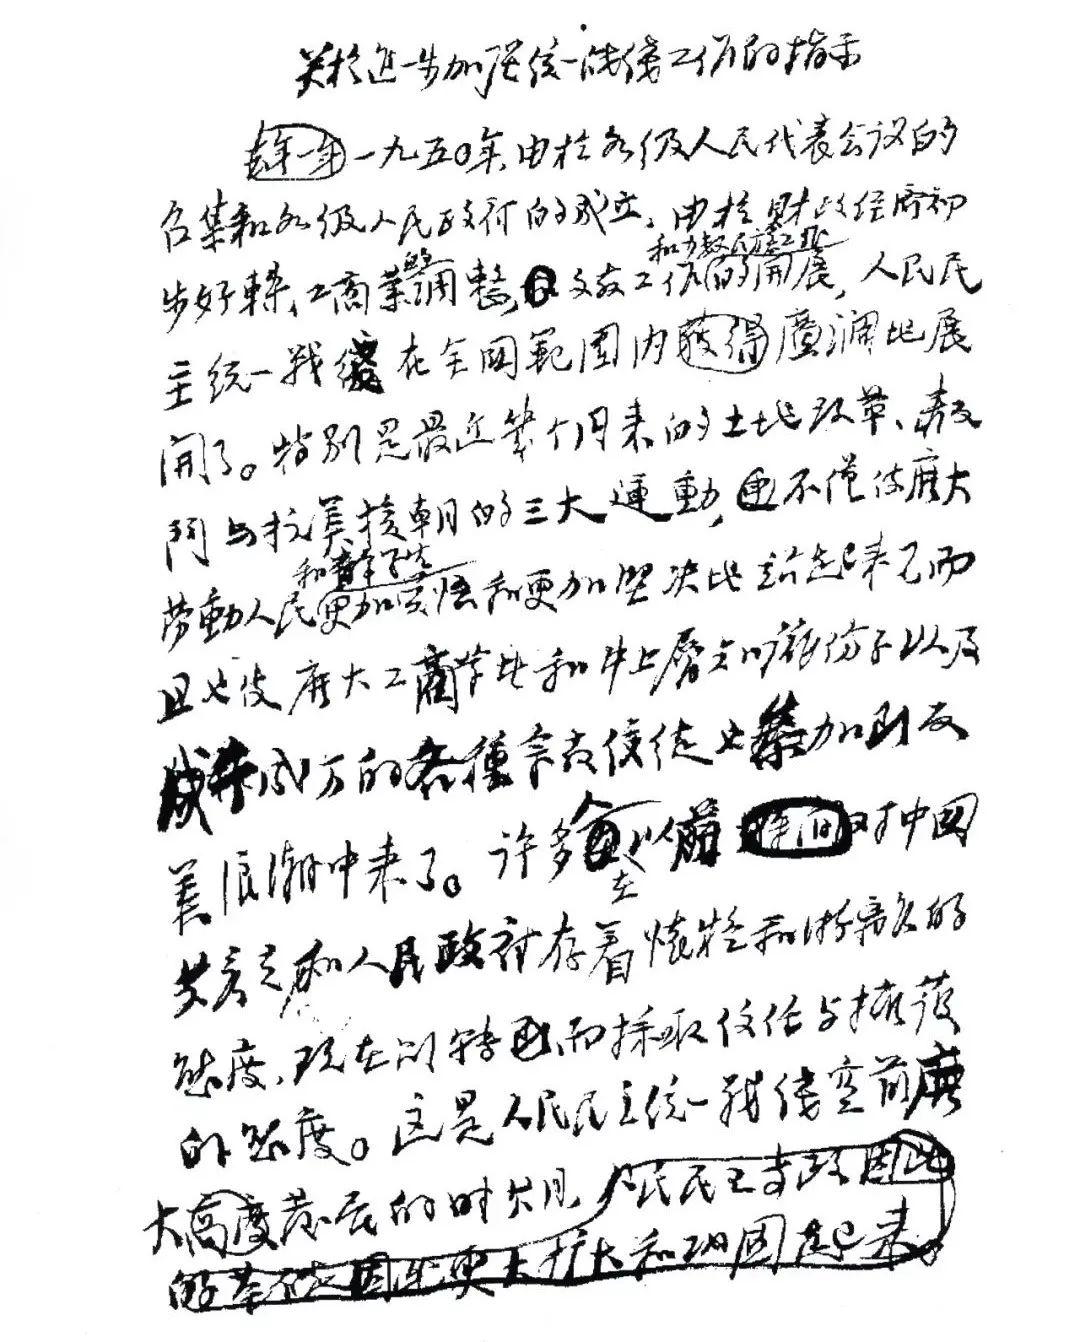 关於進一步加强统一战线工作的指示
去年一年一九五〇年,由於各级人民代表会议的
召集和各级人民政府的成立,由於财政经济初
和少数民族工作
步好轉、工商業的调整,文教工作的開展,人民民
主统一战线在全国範围内获得廣泛地展
開了。特别是最近幾个月来的土地改革、
与抗美援朝的三大運動,不僅使廣大
和青年学生
劳動人民更加觉悟和更加坚决地站起来了而
且也使廣大工商业和中上层知识份子以及
成千成万的各種宗教信徒也参加到反
美浪潮中来了。许多以前对中国
在
共产党和人民政府存着怀疑和
态度,现在则转而採取信任与擁護
的态度。这是人民民主统一战线空前廣
大高度发展的时期人民民主专政因此
的基礎因此更大扩大和巩固起来。